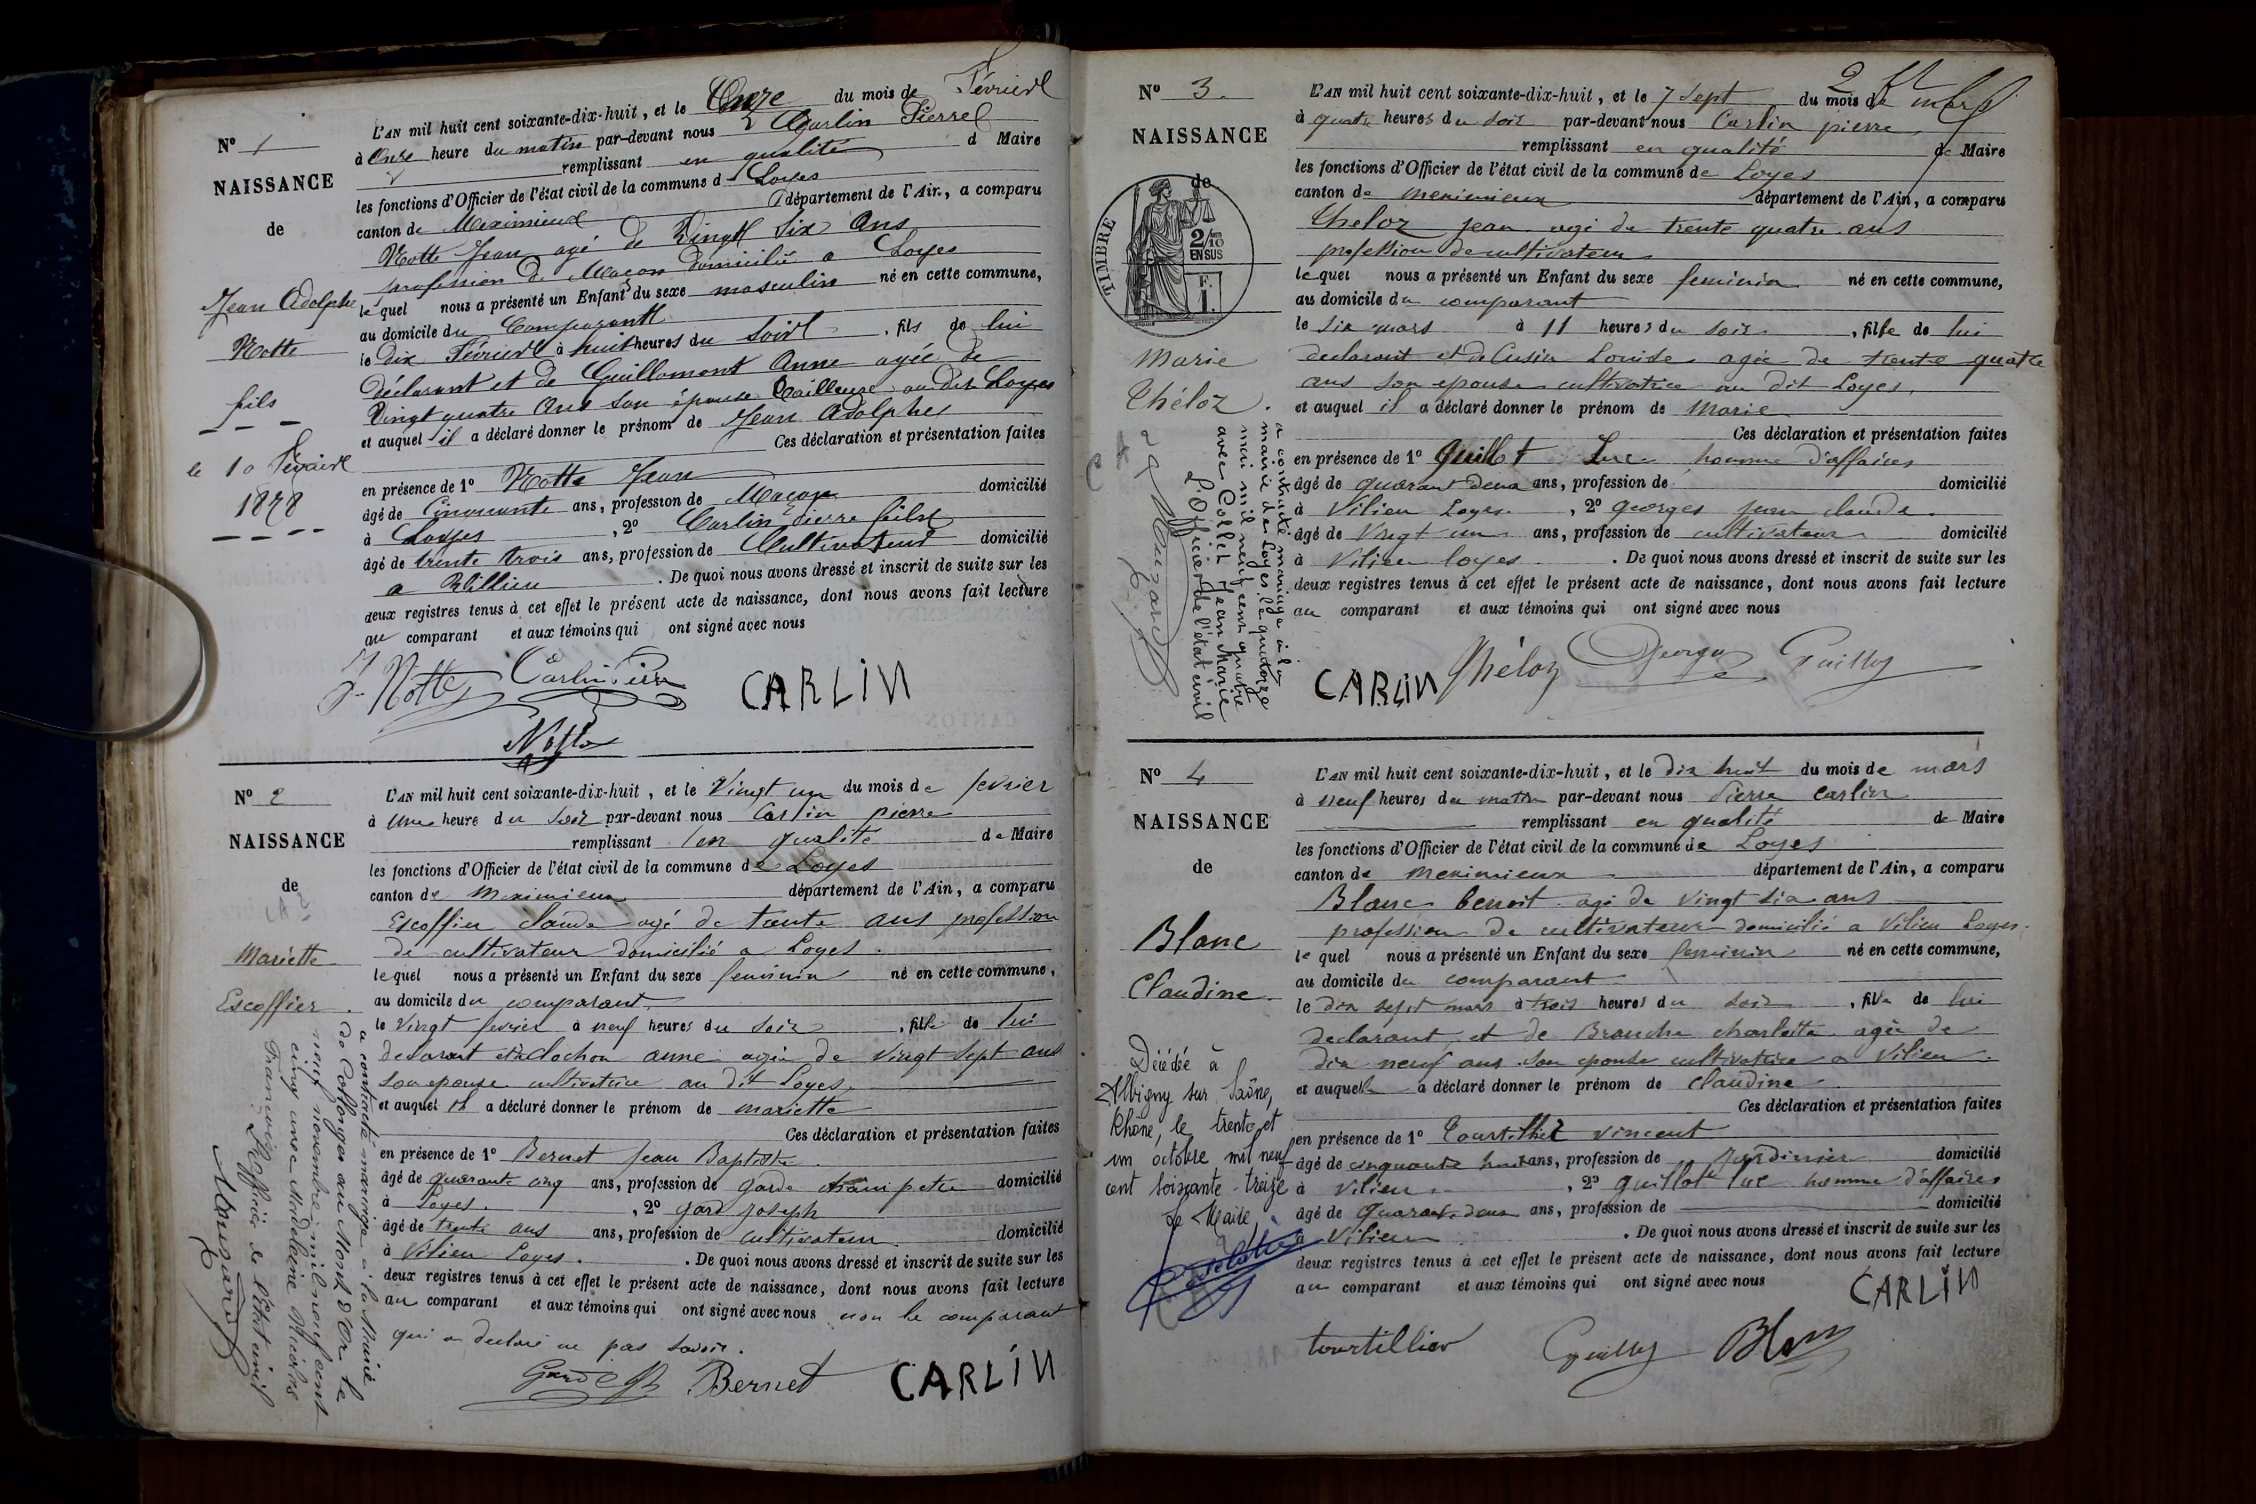 N° 1
NAISSANCE
de
Jean Adolphe
Notte
fils
le 10 Février
1878
L'AN mil huit cent soixante-dix-huit, et le Onze du mois de Février
à Onze heure du matin par-devant nous Carlin Pierre
remplissant en qualité d Maire
les fonctions d'Officier de l'état civil de la commune d Loyes
canton de Meximieux département de l'Ain, a comparu
Notte Jean agé de Vingt Six Ans
profession de Maçon domicilié a Loyes
lequel nous a présenté un Enfant du sexe masculin né en cette commune,
au domicile du Comparant
le dix Février à huit heures du Soir, fils de lui
déclarant et de Guillomont Anne agée de
Vingt quatre Ans son épouse tailleuse au dit Loyes
et auquel il a déclaré donner le prénom de Jean Adolphe
Ces déclaration et présentation faites
en présence de 1° Notte Jean
âgé de Cinquante ans, profession de Maçon domicilié
à Loyes, 2° Carlin Pierre fils
âgé de trente trois ans, profession de Cultivateur domicilié
a Villieu. De quoi nous avons dressé et inscrit de suite sur les
deux registres tenus à cet effet le présent acte de naissance, dont nous avons fait lecture
au comparant et aux témoins qui ont signé avec nous
J. Notte Carlin Pierre CARLIN
Notte
N° 2
NAISSANCE
de
Mariette
Escoffier
a contracté mariage à la Mairie
de Collonges au Mont d'Or le
neuf novembre mil neuf cent
cinq avec
François
L'Officier de l'Etat civil
L'AN mil huit cent soixante-dix-huit, et le Vingt un du mois de fevrier
à une heure du soir par-devant nous Carlin pierre
remplissant en qualité de Maire
les fonctions d'Officier de l'état civil de la commune de Loyes
canton de Meximieux département de l'Ain, a comparu
Escoffier claude agé de trente ans profession
de cultivateur domicilié a Loyes.
lequel nous a présenté un Enfant du sexe feminin né en cette commune,
au domicile du comparant
le Vingt fevrier à neuf heures du Soir, fille de lui
declarant et de anne agée de Vingt Sept ans
son epouse cultivatrice au dit Loyes.
et auquel il a déclaré donner le prénom de mariette
Ces déclaration et présentation faites
en présence de 1° Bernet Jean Baptiste
âgé de quarante cinq ans, profession de garde champetre domicilié
à Loyes., 2° gard joseph
âgé de trente ans ans, profession de cultivateur domicilié
à Vilieu Loyes. De quoi nous avons dressé et inscrit de suite sur les
deux registres tenus à cet effet le présent acte de naissance, dont nous avons fait lecture
au comparant et aux témoins qui ont signé avec nous non le comparant
qui a declaré ne pas savoir.
Gard Bernet CARLIN
2
N° 3.
NAISSANCE
de
TIMBRE
2/10
EN SUS
F.
1.
Marie
Théloz.
a contracté mariage à la
mairie de Loyes le quatorze
mai mil neuf cent quatre
avec Collet Jean Marie
L'Officier de l'état civil
L'AN mil huit cent soixante-dix-huit, et le 7 Sept du mois de mars
à quatre heures du soir par-devant nous Carlin pierre
remplissant en qualité de Maire
les fonctions d'Officier de l'état civil de la commune de Loyes
canton de meximieux département de l'Ain, a comparu
Theloz jean agé de trente quatre ans
profession de cultivateur
lequel nous a présenté un Enfant du sexe feminin né en cette commune,
au domicile du comparant
le six mars à 11 heures du soir, fille de lui
declarant et de Cusin Louise agée de trente quatre
ans son epouse cultivatrice au dit Loyes.
et auquel il a déclaré donner le prénom de Marie
Ces déclaration et présentation faites
en présence de 1° Guillot Luc homme d'affaires
âgé de quarant deux ans, profession de domicilié
à Vilieu Loyes, 2° georges jean claude.
âgé de Vingt un ans, profession de cultivateur domicilié
à Vilieu loyes. De quoi nous avons dressé et inscrit de suite sur les
deux registres tenus à cet effet le présent acte de naissance, dont nous avons fait lecture
au comparant et aux témoins qui ont signé avec nous
CARLIN Théloz Georges
N° 4
NAISSANCE
de
Blanc
Claudine.
Décédée à
Albigny sur Saône,
Rhône, le trente et
un octobre mil neuf
cent soixante-treize
Le Maire,
L'AN mil huit cent soixante-dix-huit, et le dix huit du mois de mars
à neuf heures du matin par-devant nous Pierre Carlin
remplissant en qualité de Maire
les fonctions d'Officier de l'état civil de la commune de Loyes
canton de meximieux département de l'Ain, a comparu
Blanc benoit agé de Vingt six ans
profession de cultivateur domicilié a Vilieu Loyes.
lequel nous a présenté un Enfant du sexe feminin né en cette commune,
au domicile du comparant
le dix sept mars à trois heures du soir, fille de lui
declarant, et de Branche charlotte agée de
dix neuf ans son epouse cultivatrice a Vilieu.
et auquel a déclaré donner le prénom de claudine
Ces déclaration et présentation faites
en présence de 1° vincent
âgé de cinquante huit ans, profession de jardinier domicilié
à Vilieu., 2° guillot luc homme d'affaires
âgé de quarant deux ans, profession de domicilié
à Vilieu. De quoi nous avons dressé et inscrit de suite sur les
deux registres tenus à cet effet le présent acte de naissance, dont nous avons fait lecture
au comparant et aux témoins qui ont signé avec nous CARLIN
tourtillier Blanc